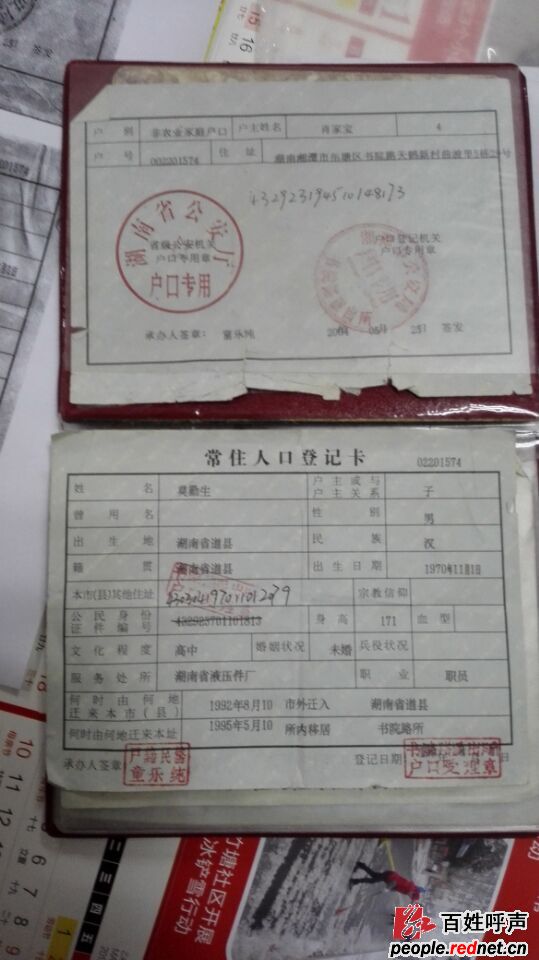 户 别 非农业家庭户口 户主姓名 肖家宝 4
户 号 002201574 住 址 湖南湘潭市岳塘区书院路天鹅新村曲波里5栋29号
432923194510148173
湖南省公安厅
户口专用
省级公安机关
户口专用章
户口登记机关
户口专用章
承办人签章: 童乐纯 2004 年 05月 25日 签发
常住人口登记卡
02201574
姓 名 莫勤生 户主或与户主关系 子
曾 用 名 性 别 男
出 生 地 湖南省道县 民 族 汉
籍 贯 湖南省道县 出生日期 1970年11月1日
本市(县)其他住址 宗教信仰
公民身份证件编号 432923701101813 身 高 171 血 型
文化程度 高中 婚姻状况 未婚 兵役状况
服务处所 湖南省液压件厂 职 业 职员
何时由何地迁来本市(县) 1992年8月10 市外迁入 湖南省道县
何时由何地迁来本址 1995年5月10 所内移居 书院路所
承办人签章
户籍民警
童乐纯
登记日期
户口受理章
竹塘社区开展
冰铲雪行动
百姓呼声
people.rednet.cn